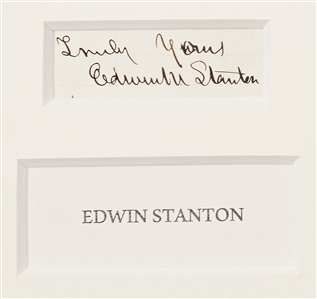 Truly Yours
Edwin M Stanton
EDWIN STANTON